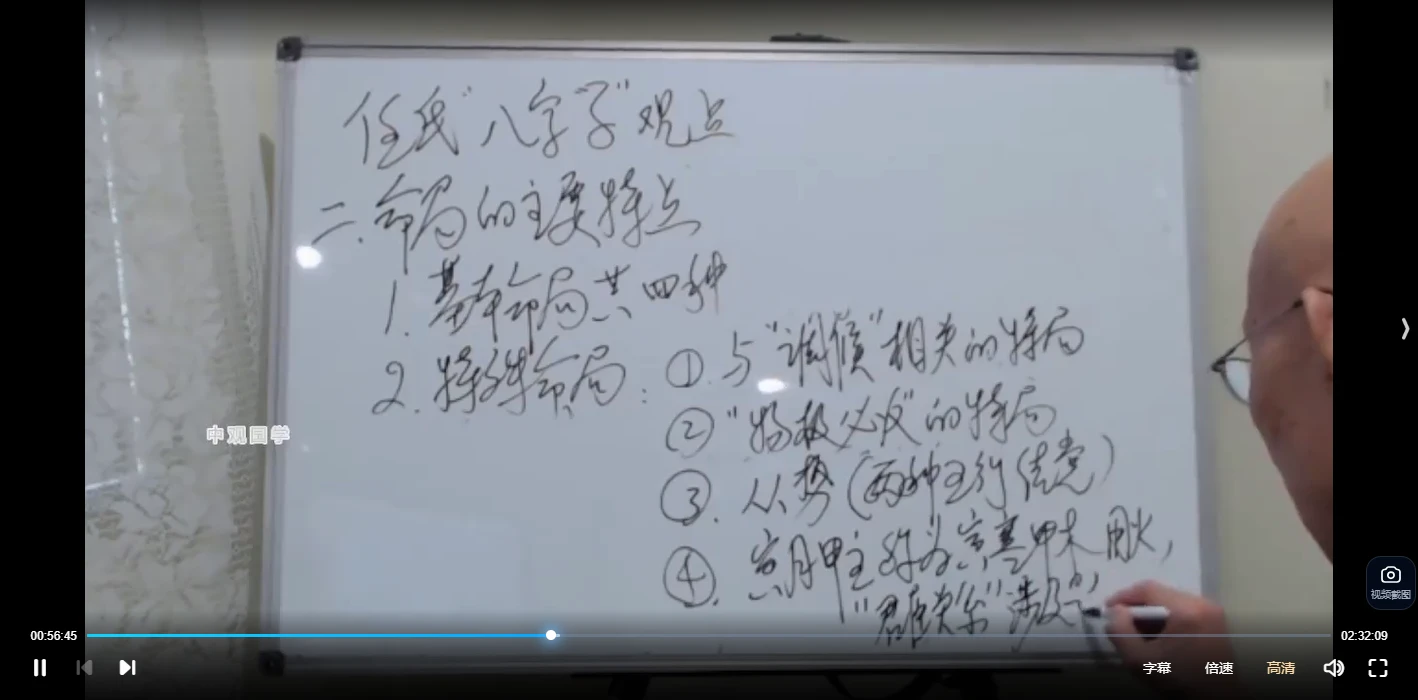 任氏“八字子”观点
二.命局的主要特点
1.基本命局共四种
2.特殊命局:①.与“调候”相关的特局
②“物极必反”的特局
③.从势(两种五行结党)
④.寅月甲主 为 寒甲木用火,
“
中观国学
视频截图
00:56:45
02:32:09
字幕
倍速
高清